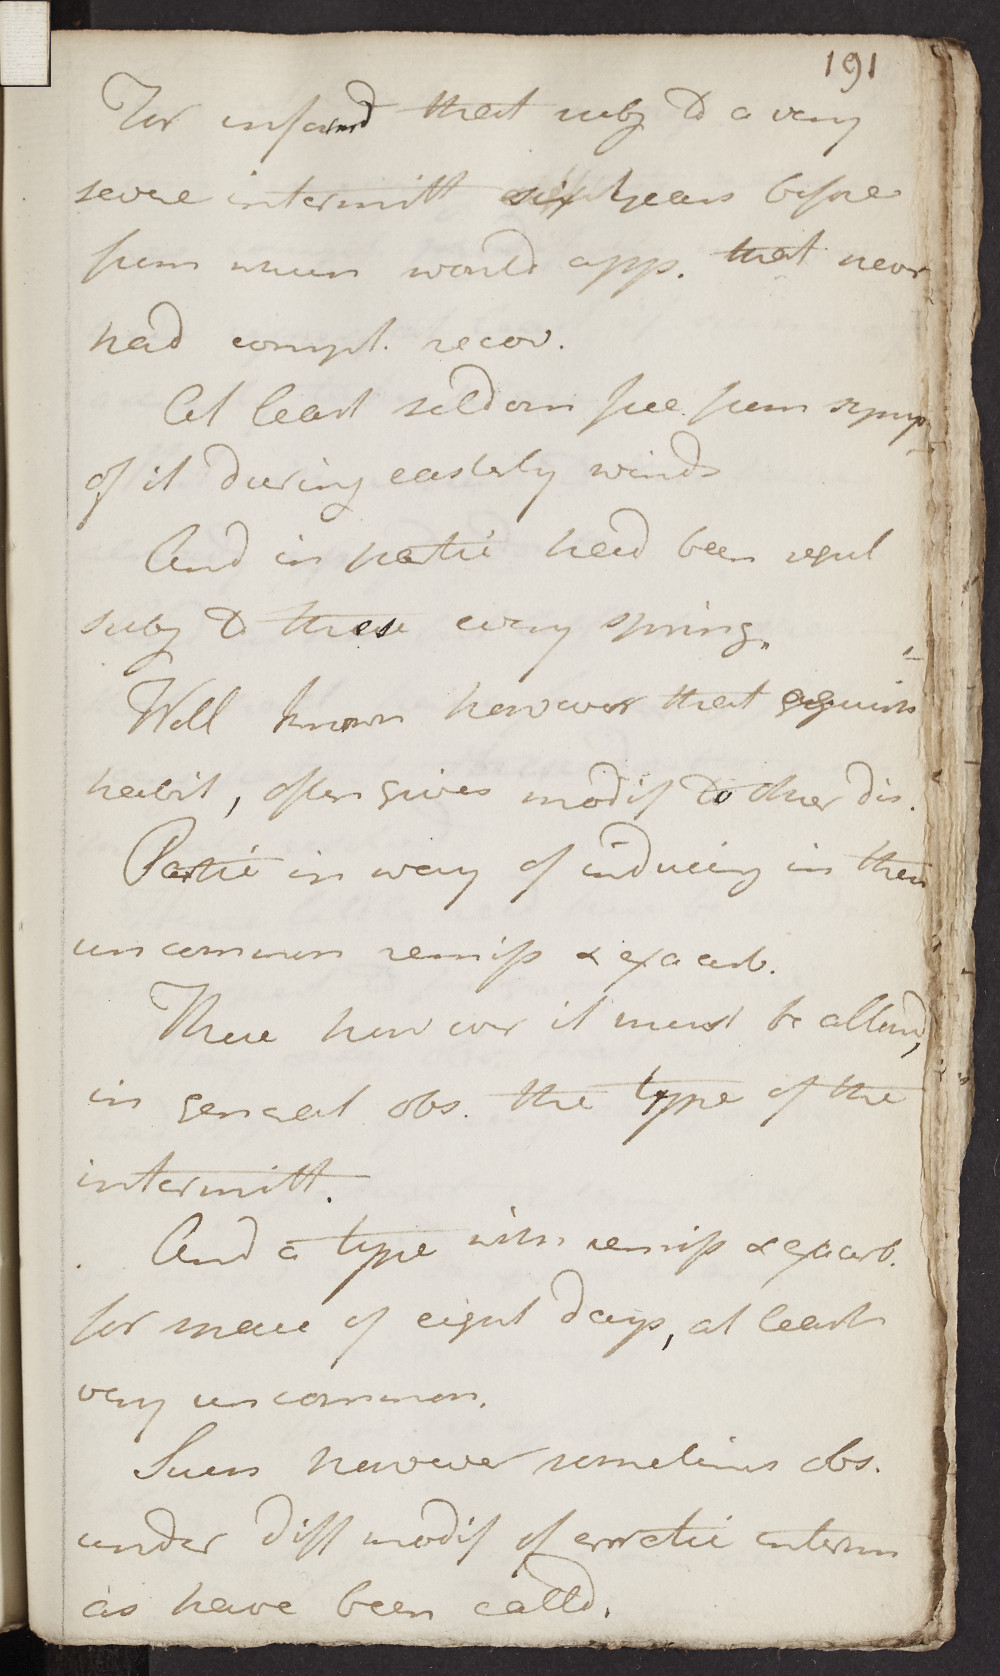 191
For informd that subj to a very
severe intermitt six years before
from whence would app. that never
had compl. recov.
At least seldom free from symp
of it during easterly winds
And in partic had been regul
subj to these every spring.
Well known however that aguish
habit, often gives modif to other dis.
Partic in way of inducing in them
uncommon remiss & exacerb.
There however it must be allowd,
in general obs. the type of the
intermitt.
And a type with remiss & exacerb.
for space of eight days, at least
very uncommon.
Such however sometimes obs.
under diff modif of erratic interm
as have been calld.